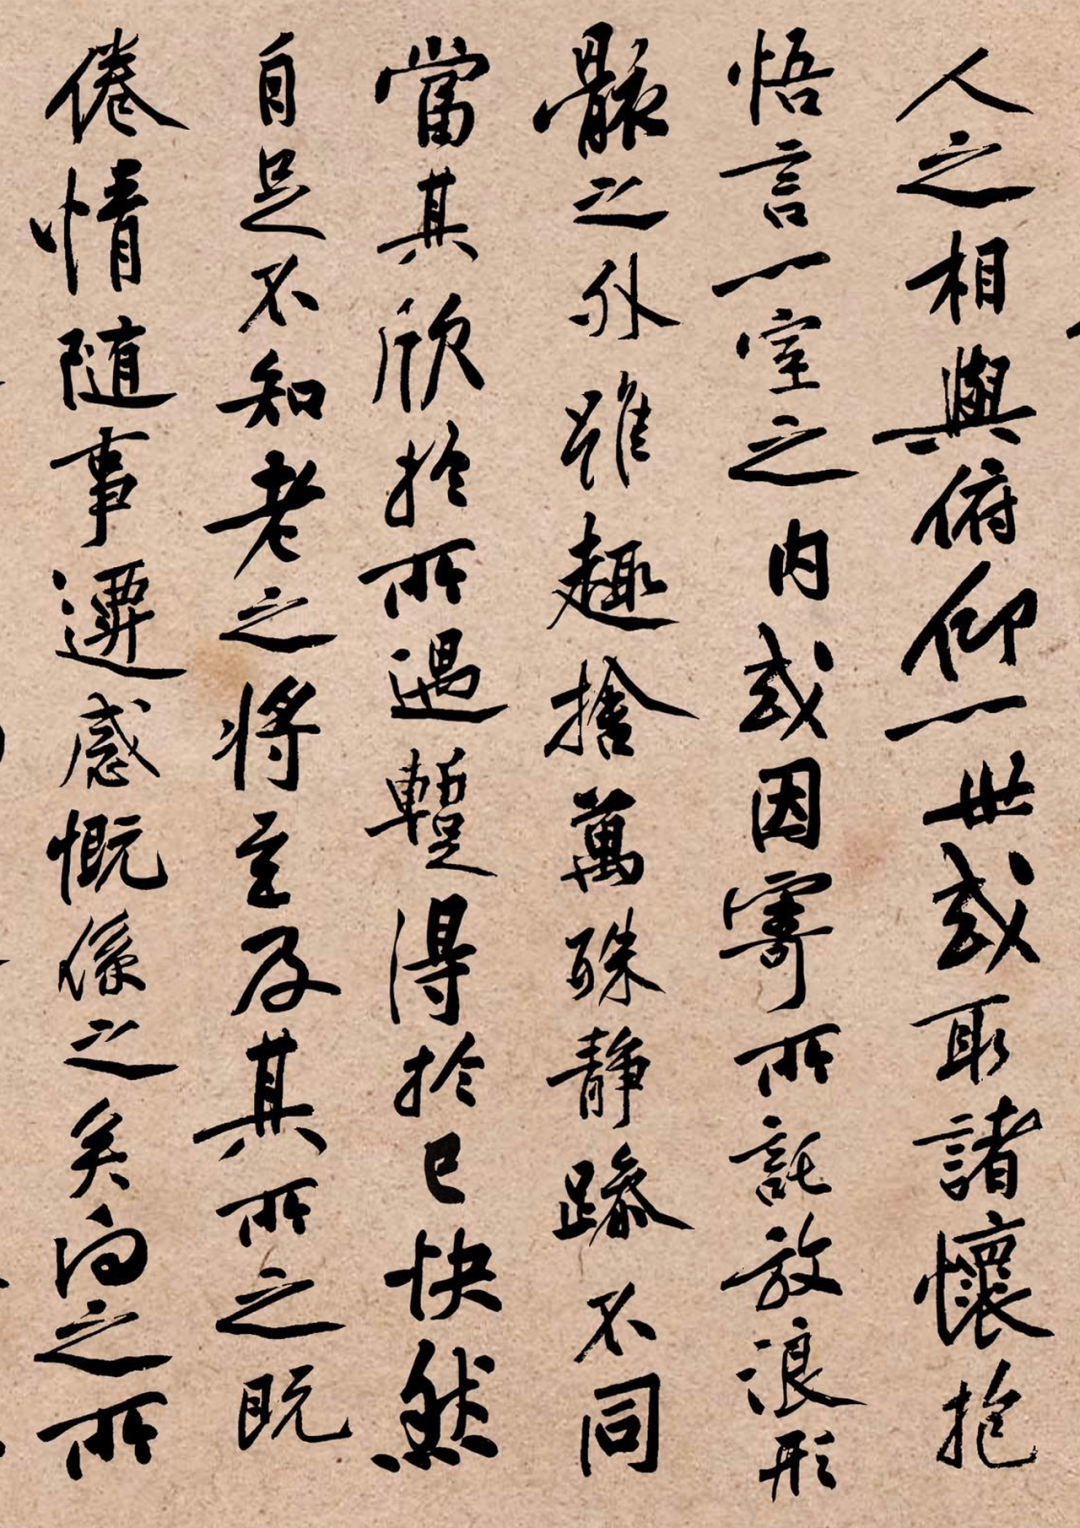 人之相與俯仰一世或取諸懷抱
悟言一室之内或因寄所託放浪形
骸之外雖趣捨萬殊靜躁不同
當其欣於所遇蹔得於己快然
自足不知老之將至及其所之既
倦情隨事遷感慨係之矣向之所